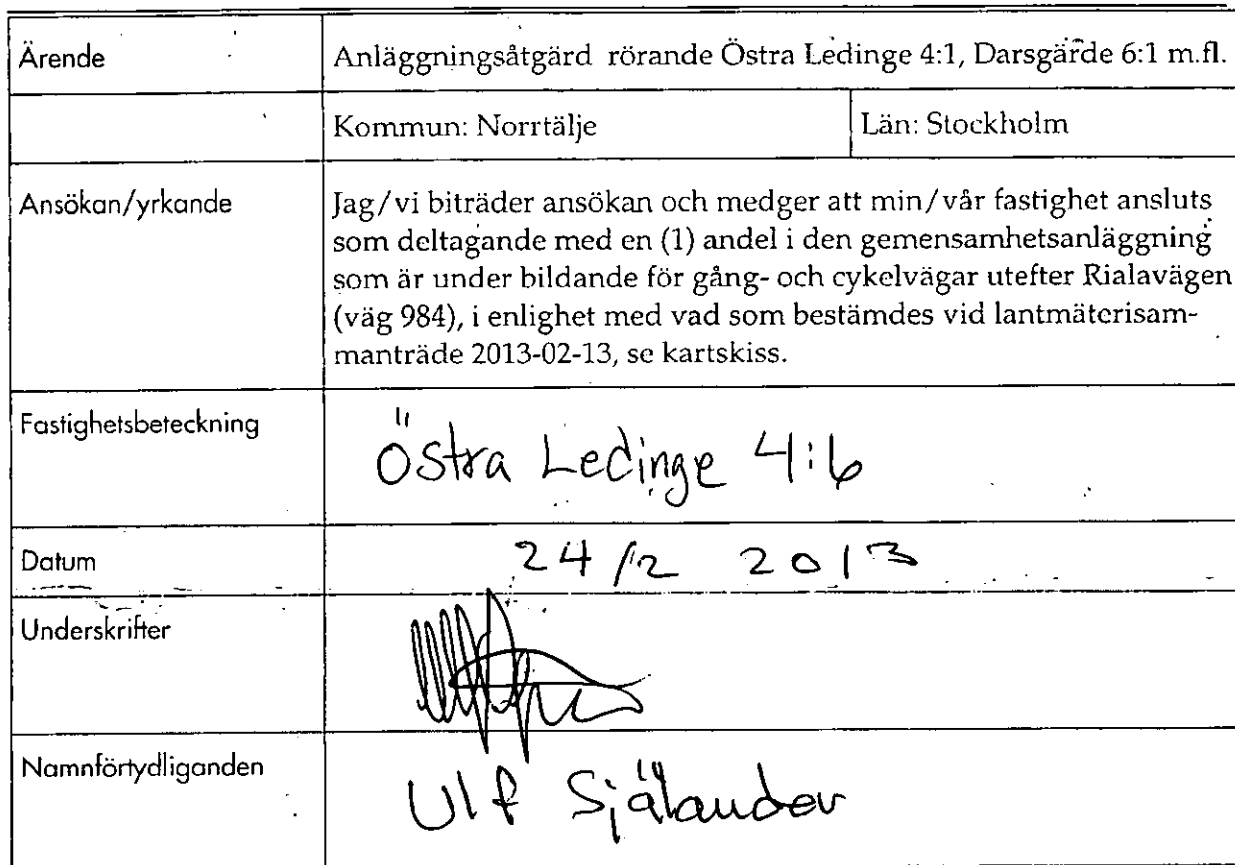 Ärende
Anläggningsåtgärd rörande Östra Ledinge 4:1, Darsgärde 6:1 m.fl.
Kommun: Norrtälje
Län: Stockholm
Ansökan/yrkande
Jag/vi biträder ansökan och medger att min/vår fastighet ansluts
som deltagande med en (1) andel i den gemensamhetsanläggning
som är under bildande för gång- och cykelvägar utefter Rialavägen
(väg 984), i enlighet med vad som bestämdes vid lantmäterisam-
manträde 2013-02-13, se kartskiss.
Fastighetsbeteckning
Östra Ledinge 4:6
Datum
24/2 2013
Underskrifter
Namnförtydliganden
Ulf Själander